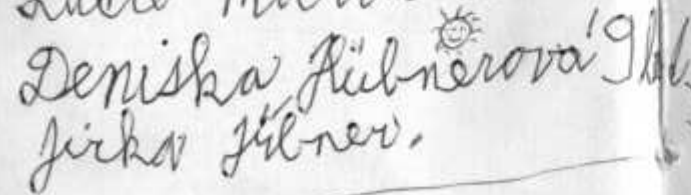 Deniska Hübnerová 9 let
Jirka Hübner.